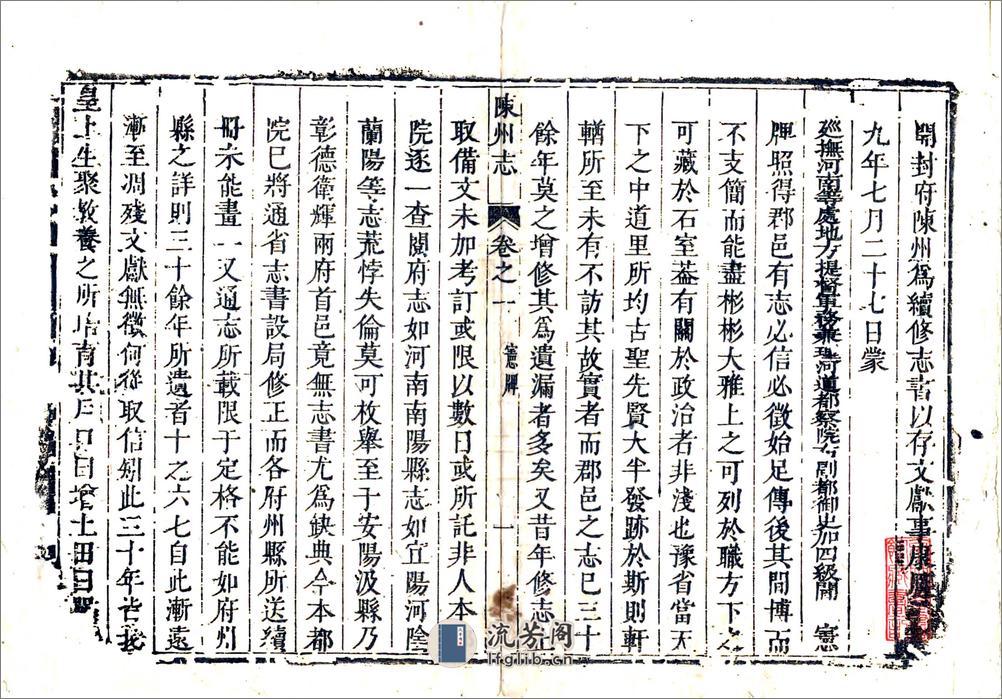 開封府陳州爲續修志書以存文獻事康熙
九年七月二十七日蒙
巡撫河南等處地方提督軍務兼理河道都察院右副都御史加四級閻 憲
牌照得郡邑有志必信必徵始足傳後其間博而
不支簡而能盡彬彬大雅上之可列於職方下之
可藏於石室葢有關於政治者非淺也豫省當天
下之中道里所均古聖先賢大半發跡於斯則軒
輶所至未有不訪其故實者而郡邑之志已三十
餘年莫之增修其爲遺漏者多矣又昔年修志止
陳州志 卷之一 憲牌 一
取備文未加考訂或限以數日或所託非人本
院逐一查閱府志如河南南陽縣志如宜陽河陰
蘭陽等志荒悖失倫莫可枚舉至于安陽汲縣乃
彰德衛輝兩府首邑竟無志書尤爲缺典今本都
院已將通省志書設局修正而各府州縣所送續
冊未能畫一又通志所載限于定格不能如府州
縣之詳則三十餘年所遺者十之六七自此漸遠
漸至凋殘文獻無徵何從取信矧此三十年皆我
皇上生聚教養之所培育其戶口日增土田日
流芳阁
lfglib.cn